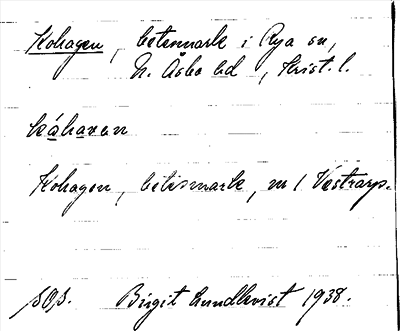 Kohagen, betesmark i Rya sn,
N. Åsbo hd, Krist. l.
kåhaven
Kohagen, betesmark, nr 1 Västrarp.
SOS. Birgit Lundkvist 1938.